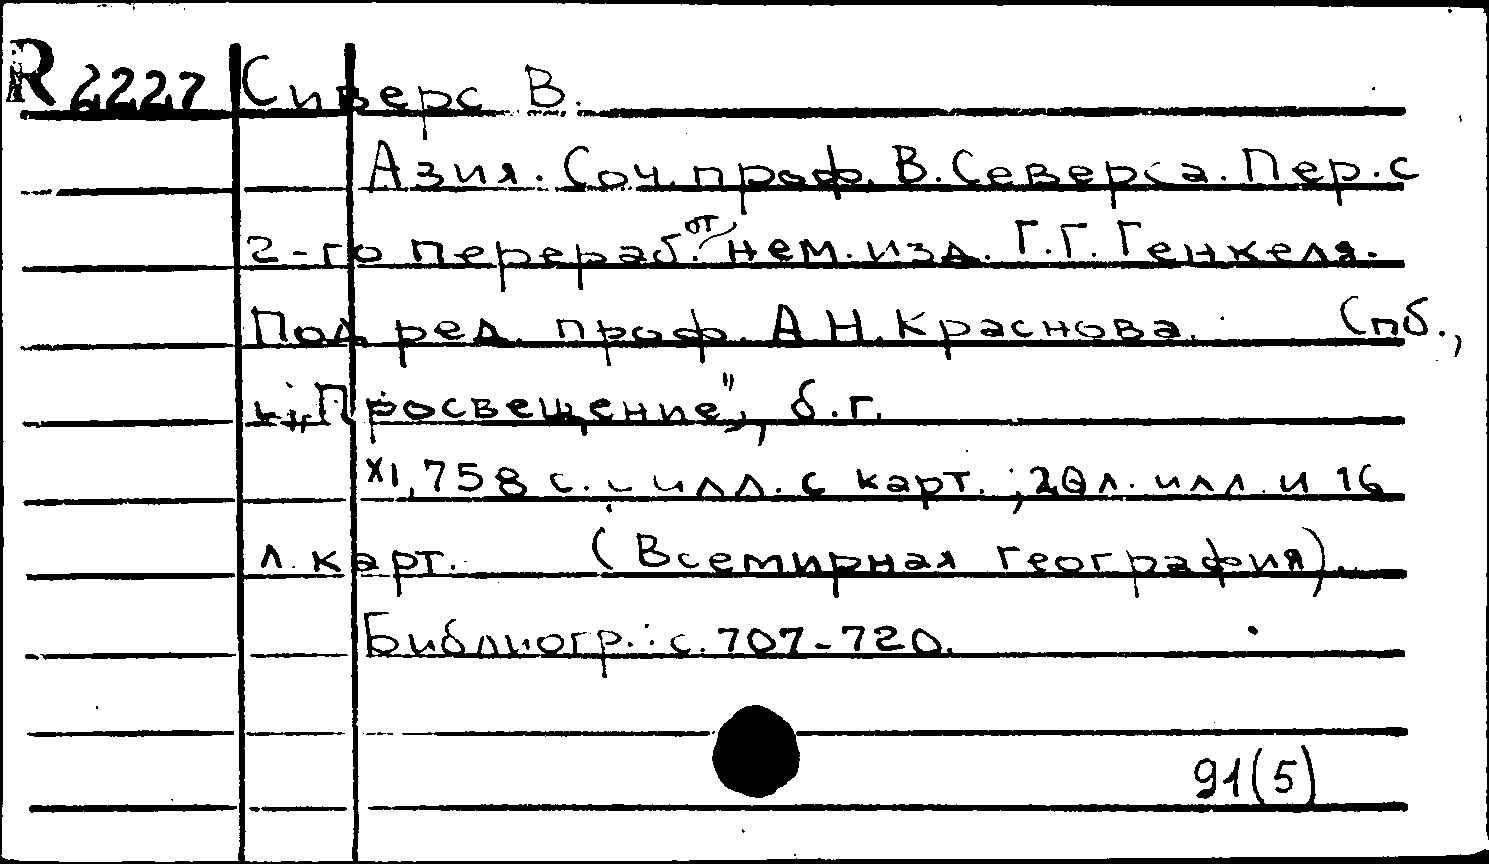 R 2227 Сиверс В.
Азия. Соч. проф. В. Северса. Пер. с
2-го перераб. от нем. изд. Г.Г. Генкеля.
Под ред. проф. А.Н. Краснова. Спб.,
„Просвещение", б.г.
XI, 758 с. с илл. с карт.; 20 л. илл. и 16
л. карт. (Всемирная география).
Библиогр.: с. 707-720.
91(5)